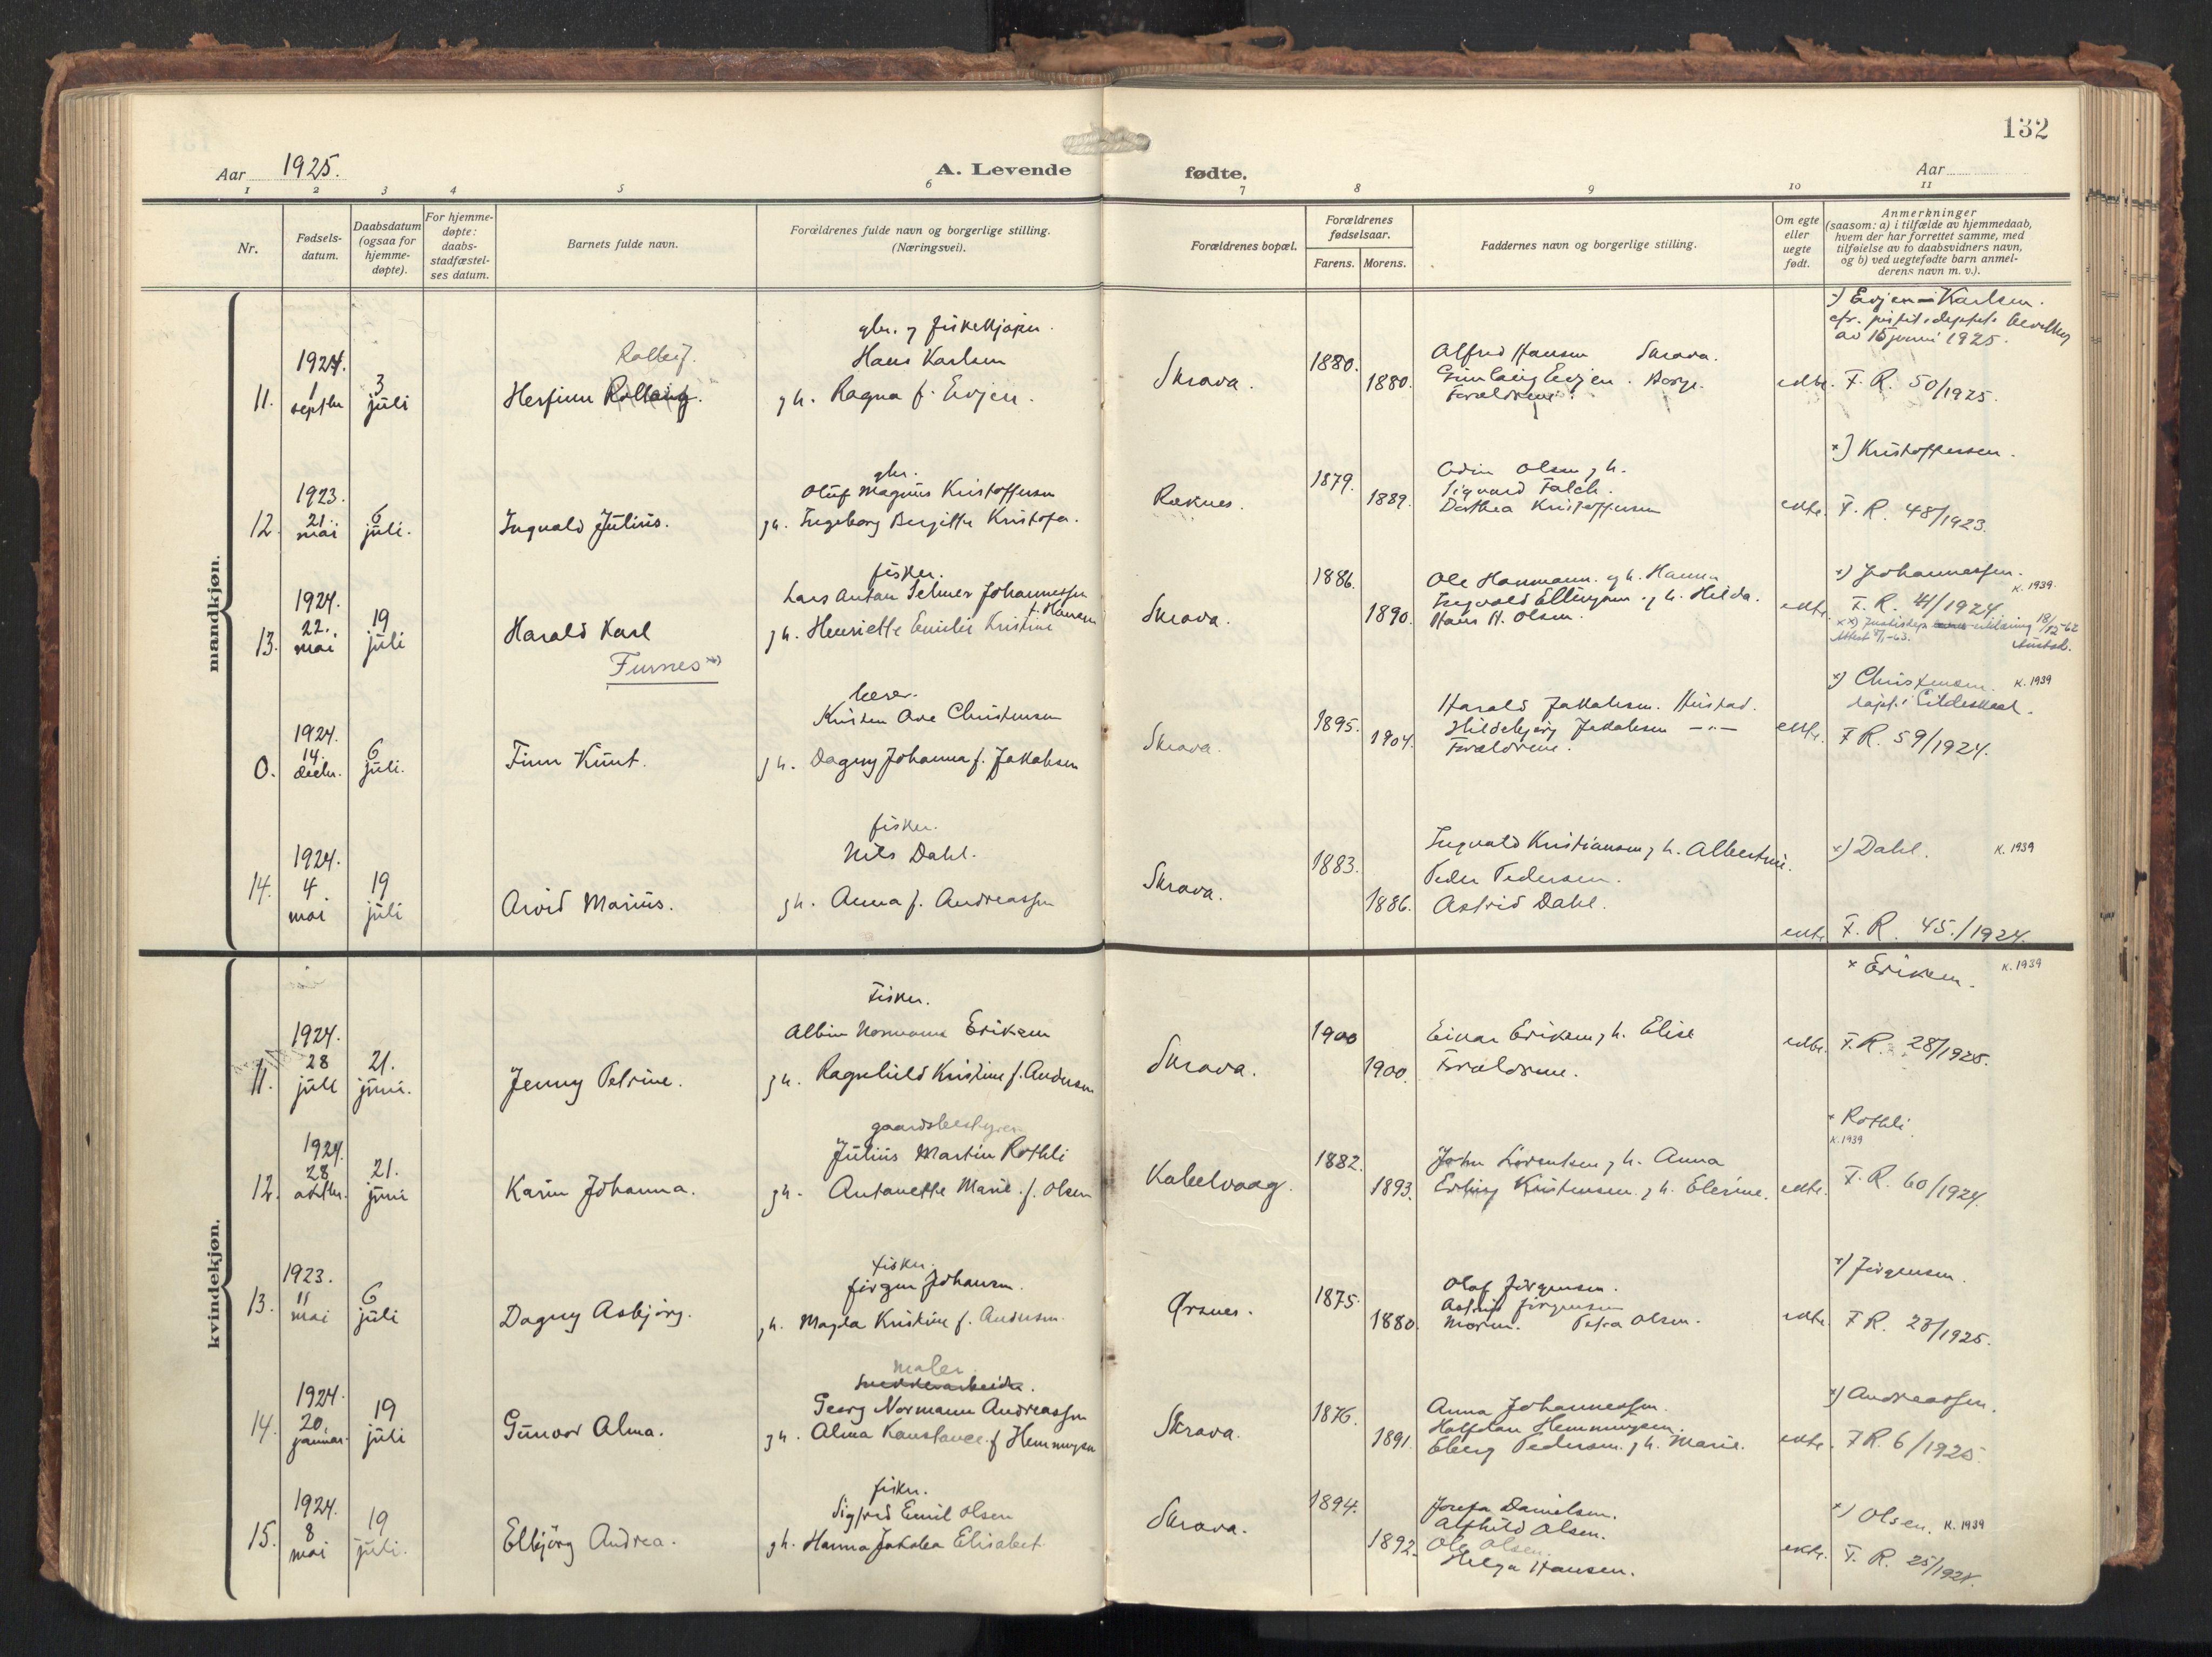 132
Aar 1925.
A. Levende fødte.
Aar
1 2 3 4 5 6 7 8 9 10 11
Nr.
Fødsels-
datum.
Daabsdatum
(ogsaa for
hjemme-
døpte).
For hjemme-
døpte:
daabs-
stadfæstel-
ses datum.
Barnets fulde navn.
Forældrenes fulde navn og borgerlige stilling.
(Næringsvei).
Forældrenes bopæl.
Forældrenes
fødselsaar.
Farens. Morens.
Faddernes navn og borgerlige stilling.
Om egte
eller
uegte
født.
Anmerkninger
(saasom: a) i tilfælde av hjemmedaab,
hvem der har forrettet samme, med
tilføielse av to daabsvidners navn,
og b) ved uegtefødte barn anmel-
derens navn m. v.).
mandkjøn.
11.
1924.
1
septbr
3
juli
Herfinn
gbr. og fiskekjøper.
Hans Karlsen
g h. Ragna f. Evjen.
Skrova.
1880.
1880.
Alfred Hansen Skrova.
Evjen. Borge.
Forældrene.
ekte.
x) Evjen-Karlsen.
av 15 juni 1925.
F. R. 50/1925.
12.
1923.
21
mai
6
juli.
Ingvald Julius.
gbr.
Oluf Magnus Kristoffersen
g h. Ingeborg Bergitte Kristofa.
Røknes.
1879.
1889.
Odin Olsen g h.
Sigvard Falch.
Dorthea Kristoffersen
ekte.
x) Kristoffersen.
F. R. 48/1923.
13.
1924.
22.
mai
19
juli
Harald Karl
Furnes xx)
fisker.
Lars Antan Selmer Johannessen
g h. Henriette Emilie Kristine f. Hansen
Skrova.
1886.
1890.
Ole Hanmann. g h. Hanna
Ingvald Ellingsen. g h. Hilda.
Hans H. Olsen.
ekte.
x) Johannessen.
K. 1939.
F. R. 41/1924.
xx) Justisdep. erklæring 18/12-62
0.
1924.
14.
decbr.
6
juli.
Finn Kunt.
Kristen Ove Christensen
g h. Dagny Johanna f. Jakobsen
Skrova.
1895.
1904.
Harald Jakobsen. Hustad.
Hildebjørg Jakobsen — " —
Forældrene.
ekte.
x) Christensen. K. 1939
døpt i Gildeskaal.
F R. 59/1924.
14.
1924.
4.
mai
19
juli
Arvid Marius.
fisker.
Nils Dahl.
g h. Anna f. Andreassen
Skrova.
1883.
1886.
Ingvald Kristiansen g h. Albertine.
Peder Pedersen.
Astrid Dahl.
ekte
x) Dahl. K. 1939
F. R. 45./1924.
kvindekjøn.
11.
1924.
28
juli
21.
juni.
Jenny Petrine.
Fisker.
Albin Normann Eriksen
g h. Ragnhild Kristine f. Andersen
Skrova.
1900
1900.
Einar Eriksen g h. Elise
Forældrene.
ekte.
x Eriksen. K. 1939
F. R. 28/1925.
12.
1924.
28.
oktbr.
21.
juni
Karin Johanna.
gaardsbestyrer
Julius Martin Rothli
g h. Antonette Marie f. Olsen
Kabelvaag.
1882.
1893.
John Lorentsen g h. Anna
Erling Kristensen. g h. Elerine.
ekte.
x Rothli
K. 1939
F. R. 60/1924.
13.
1923.
11
mai
6
juli
Dagny Asbjørg.
Fisker.
Jørgen Johansen.
g h. Magda Kristine f. Andersen.
Ørsnes.
1875.
1880.
Olaf Jørgensen.
Astrid Jørgensen
Moren. Petra Olsen.
ekte.
x) Jørgensen.
F R. 23/1925.
14.
1924.
20.
januar.
19
juli
Gunvor Alma.
maler
Georg Normann Andreassen
g h. Alma Konstance f Hemmingsen
Skrova.
1876.
1891.
Anna Johannessen.
Halfdan Hemmingsen.
Eberg Pedersen. g h. Marie.
ekte.
x) Andreassen.
F R. 6/1925.
15.
1924.
8
mai
19
juli.
Elbjørg Andrea.
fisker.
Sigfred Emil Olsen
g h. Hanna Jakoba Elisabet.
Skrova.
1894.
1892.
Josefa Danielsen.
Alfhild Olsen.
Ole Olsen.
Helga Hansen.
ekte.
x) Olsen. K. 1939
F. R. 25/1924.